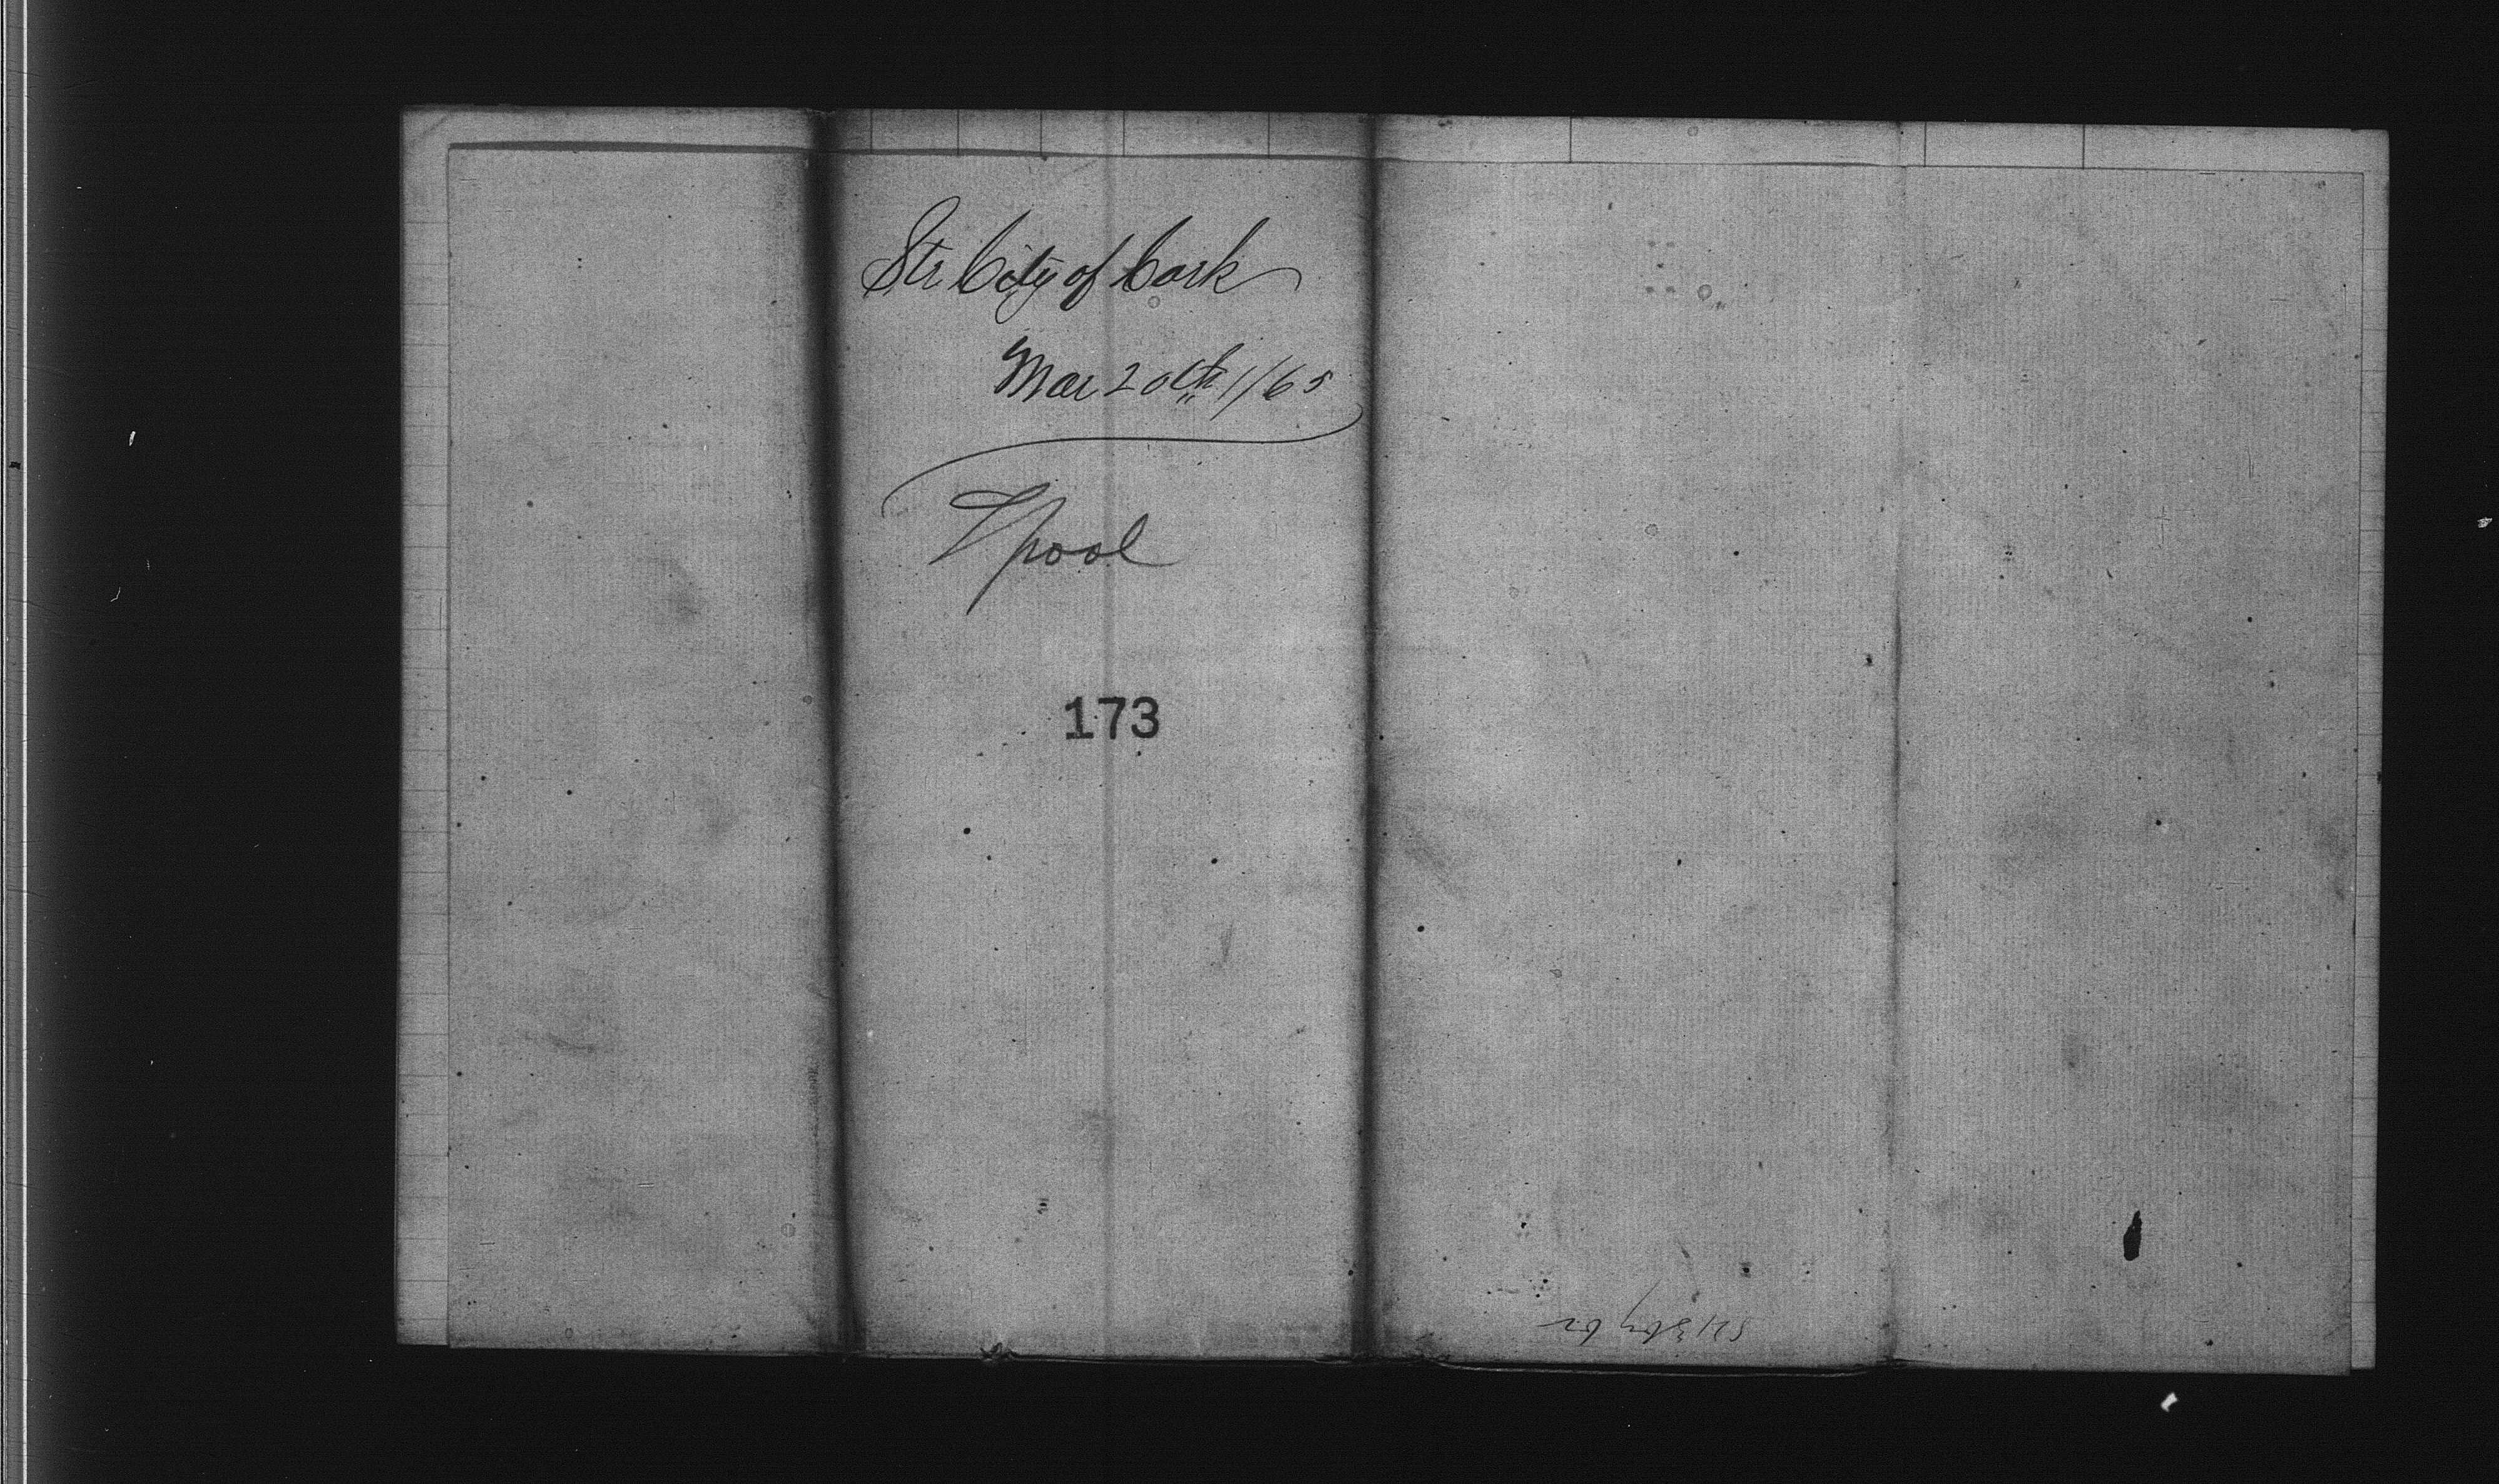 Str City of Cork
Mar 20th 1/65
Lpool
173